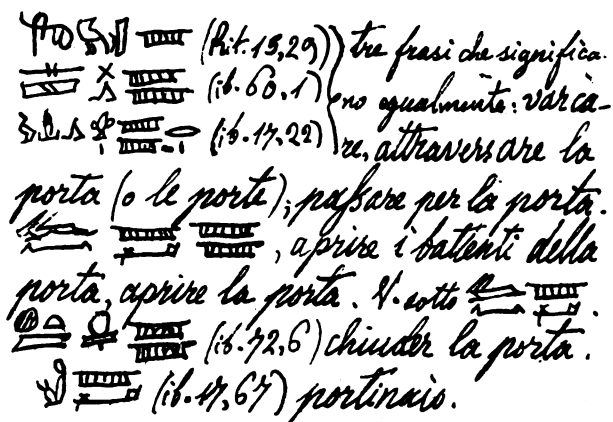 (Rit. 15,29) tre frasi che significa-
(ib. 60,1) no egualmente: varca-
(ib. 17,22) re, attraversare la
porta (o le porte); passare per la porta.
, aprire i battenti della
porta, aprire la porta. V. sotto .
(ib. 72,6) chiuder la porta.
(ib. 17,67) portinaio.